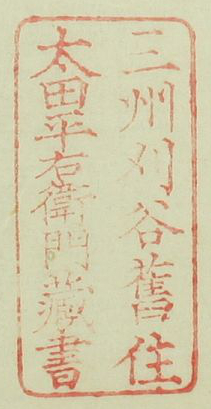 三州刈谷舊住
太田平右衛門藏書